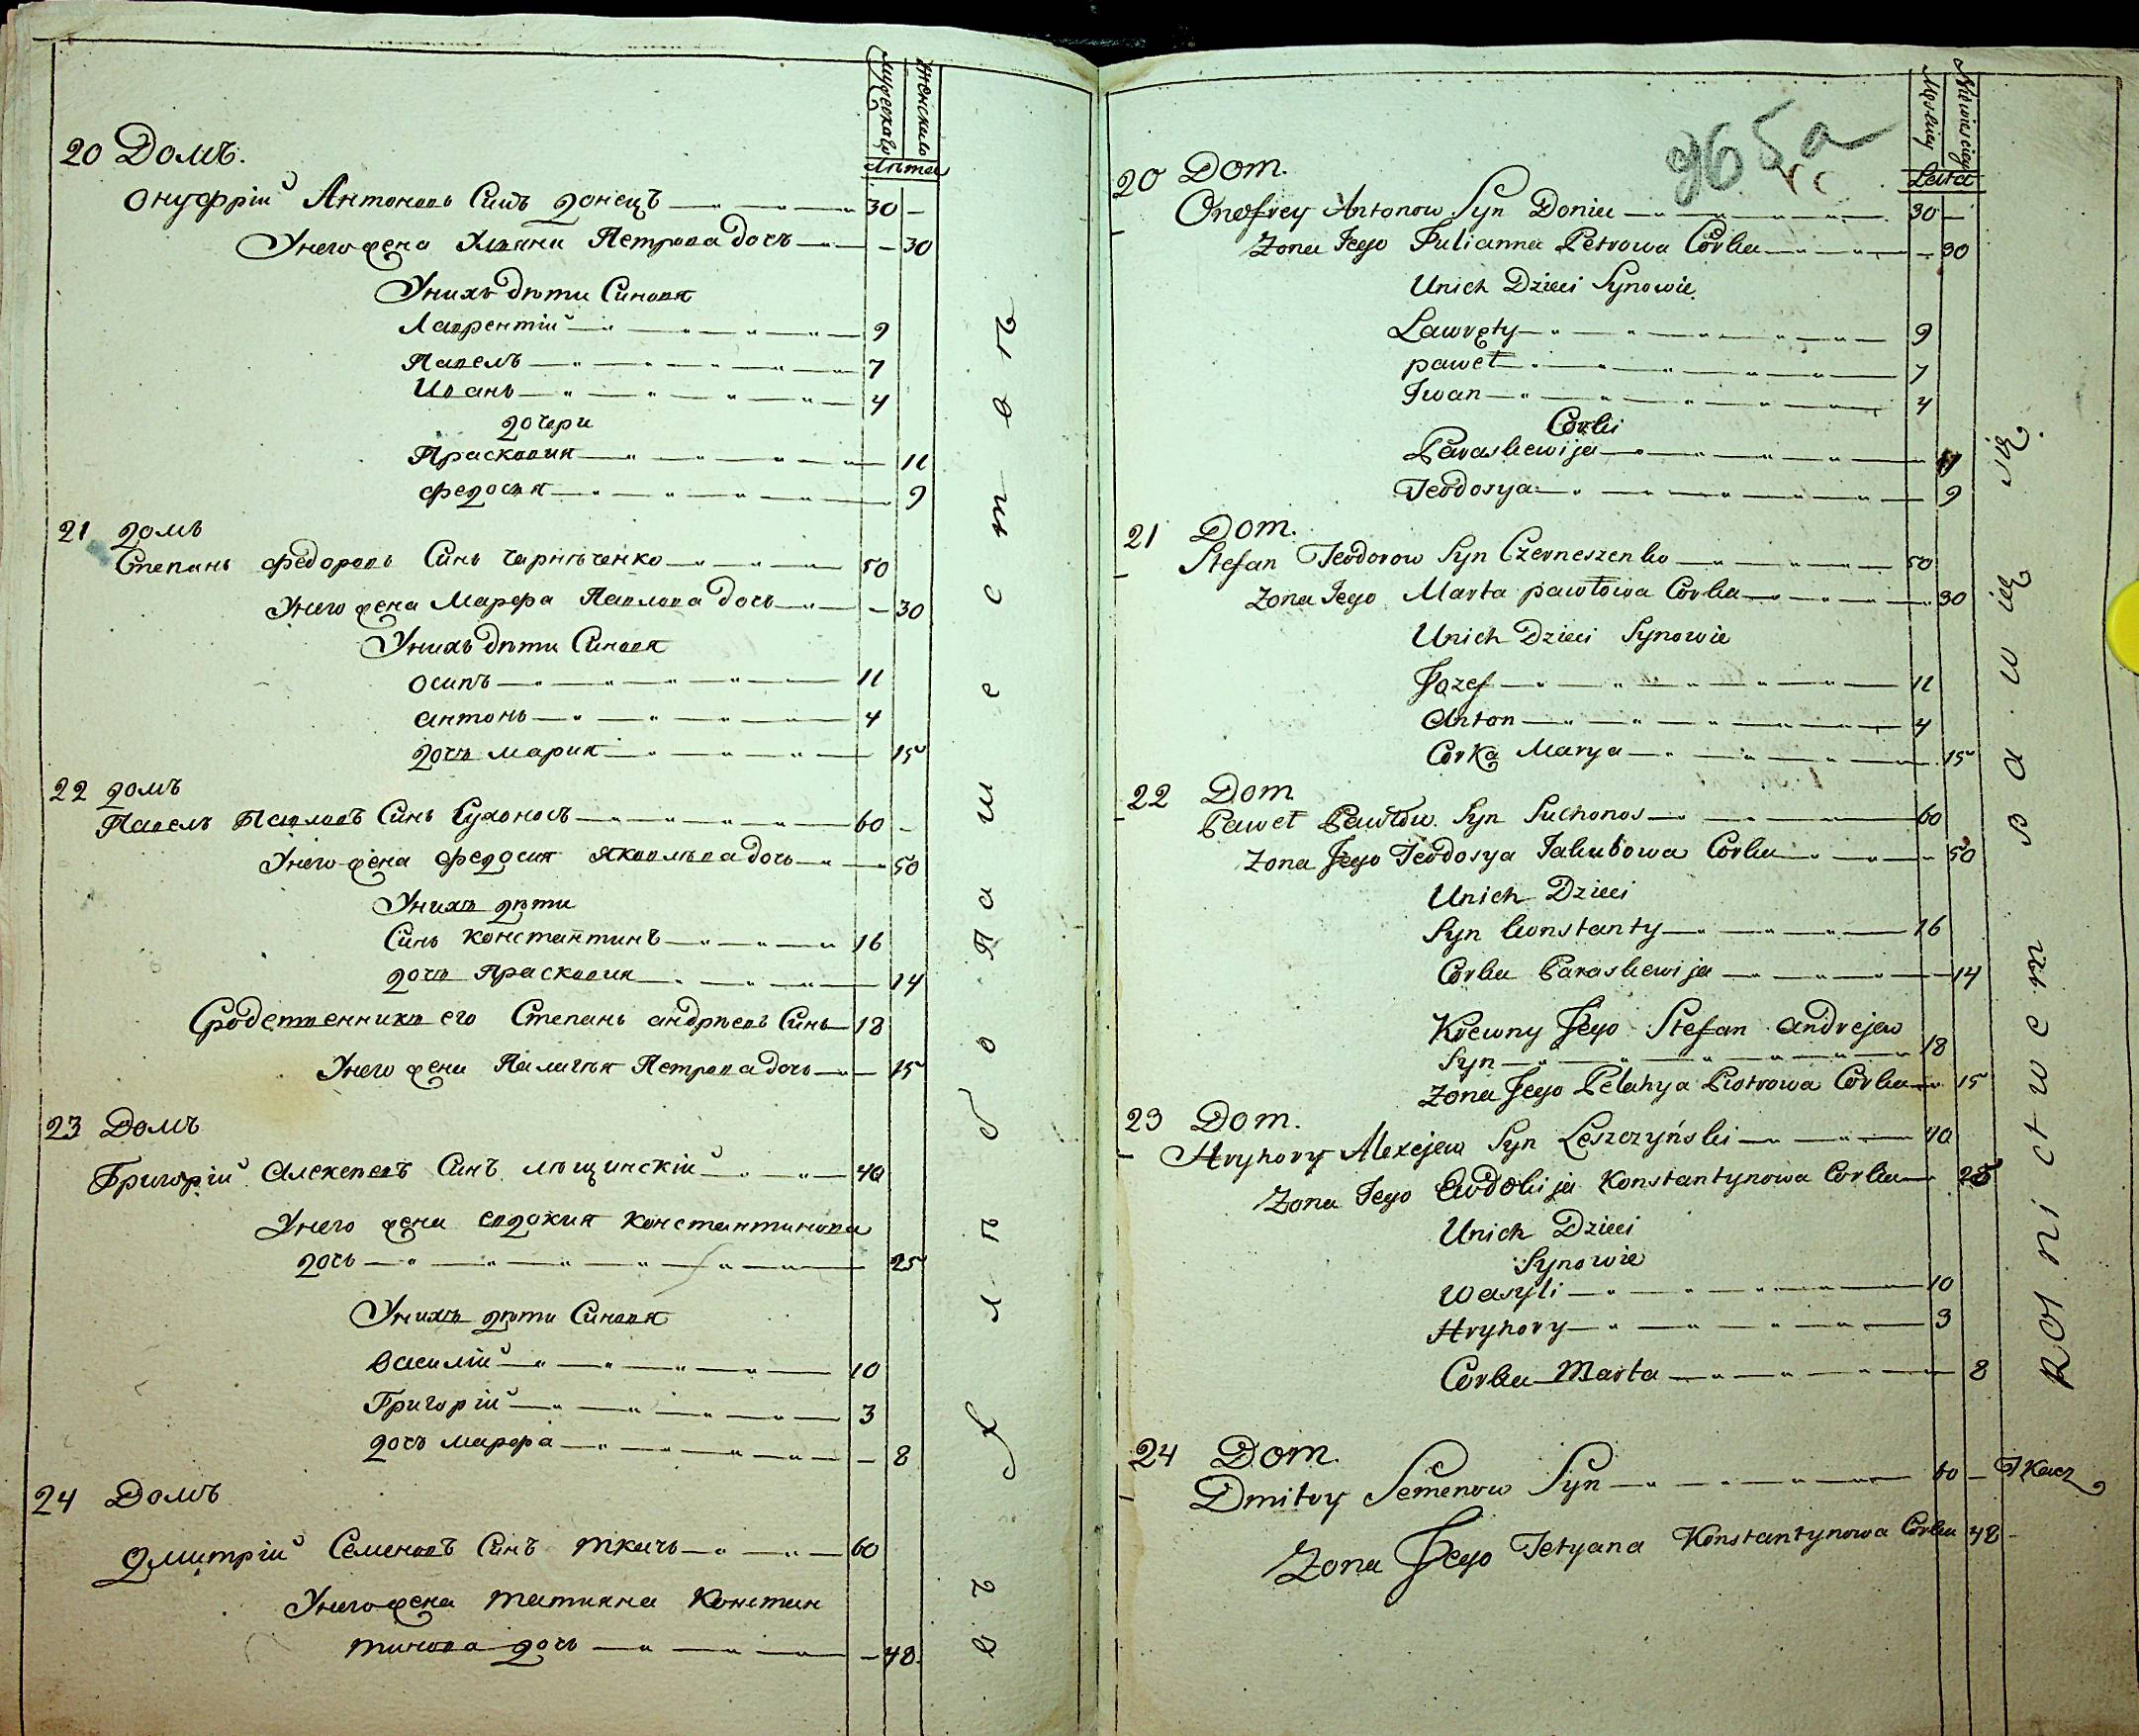 мужеска
женска
Лѣта
20 Домъ.
Онуфрій Антоновъ Синъ Донецъ 30 –
Унего жена Уляна Петрова дочъ – 30
Унихъ дѣти Синовя
Лаврентій 9
Павелъ 7
Иванъ 4
дочери
Прасковия 11
Федосия 9
21 домъ
Степанъ Федоровъ Синъ Чарнѣченко 50
Унего жена Марфа Павлова дочъ – 30
Унихъ дѣти Синовя
Осипъ 11
антонъ 4
дочъ Мария 15
22 домъ
Павелъ Павловъ Синъ Сухоносъ 60 –
Унего жена Федосия Яковлѣва дочъ 50
Унихъ дѣти
Синъ Константинъ 16
дочъ Прасковия 14
Сродственникъ его Степанъ андрѣевъ Синъ 18
Унего жена Палагѣя Петрова дочъ 15
23 Домъ
Григорій Алексѣевъ Синъ Лѣщинскій 40
Унего жена Евдокия Константинова
дочъ 25
Унихъ дѣти Синовя
Василій 10
Григорій 3
дочъ Марфа – 8
24 Домъ
Дмитрій Семеновъ Синъ Ткачъ 60
Унего жена Татияна Констан
тинова дочъ – 48
хлѣбопашеством
Męskiey
Niewiesciey
Lata
965a
20 Dom.
Onofrey Antonow Syn Doniec 30 –
Zona Jego Julianna Petrowa Córka – 30
Unich Dzieci Synowie
Lawręty 9
paweł 7
Iwan 4
Corki
Paraskewija 11
Teodosya 9
21 Dom.
Stefan Teodorow Syn Czerneszenko 50
Zona Jego Marta pawłowa Corka 30
Unich Dzieci Synowie
Jozef 11
Anton 4
Corka Marya 15
22 Dom
Paweł Pawłow Syn Suchonos 60
Zona Jego Teodosya Jakubowa Corka 50
Unich Dzieci
Syn Konstanty 16
Corka Paraskewija 14
Krewny Jego Stefan Andrejew
Syn 18
Zona Jego Pelahya Piotrowa Corka 15
23 Dom.
Hryhory Alexejew Syn Leszczyński 40
Zona Jego Ewdokija Konstantynowa Corka 25
Unich Dzieci
Synowie
Wasyli 10
Hryhory 3
Corka Marta 8
24 Dom.
Dmitry Semenow Syn 60 – Tkacz
Zona Jego Tetyana Konstantynowa Corka 48
Rolnictwem bawią się.